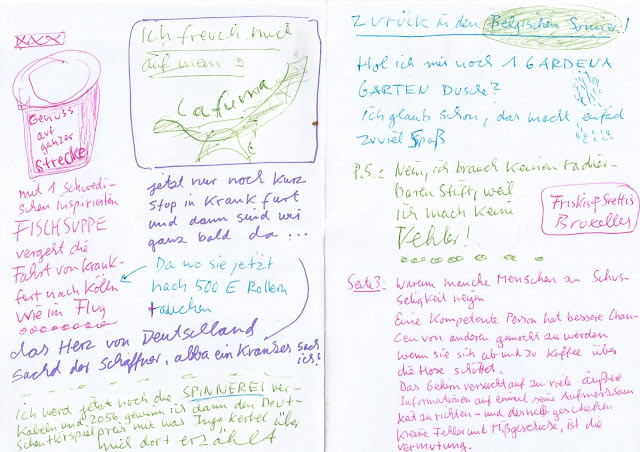 XXX
GENUSS
AUF
GANZER
STRECKE
mit 1 schwedi-
schen inspirierten
FISCHSUPPE
vergeht die
Fahrt von Krank-
furt nach Kölln
wie im Flug
Ich freuch much
auf mein 2
Lafuma
jetzt nur noch kurz
stop in Krankfurt
und dann sind wir
ganz bald da ...
Da wo sie jetzt
nach 500 E Rollern
tauchen
das Herz von Deutschland
sachd der Schaffner, abba ein krankes sach
ich!
Ich werd jetzt noch die SPINNEREI ver-
kabeln und 2056 gewinn ich dann den Deut-
schen Hörspielpreis mit was Inga Kerbel über
mich dort erzählt
Zurück in den Belgischen Sommer!
Hol ich mir noch 1 GARDENA
GARTEN DUSCHE?
ich glaub schon, das macht einfach
zuviel Spaß
P.S.: Nein, ich brauch keinen radier-
baren Stift, weil
ich mach keine
Vehler!
Friskis & Srettis
Bruxelles
Seite 3: Warum manche Menschen zu Schus-
seligkeit neigen
Eine Kompetente Person hat bessere Chan-
cen von anderen gemocht zu werden
wenn sie sich ab und zu Kaffee über
die Hose schüttet.
Das Gehirn versucht auf zu viele äußere
Informationen auf einmal seine Aufmerksam
keit zu richten - und deshalb geschehen
kleine Fehler und Mißgeschicke, ist die
Vermutung.